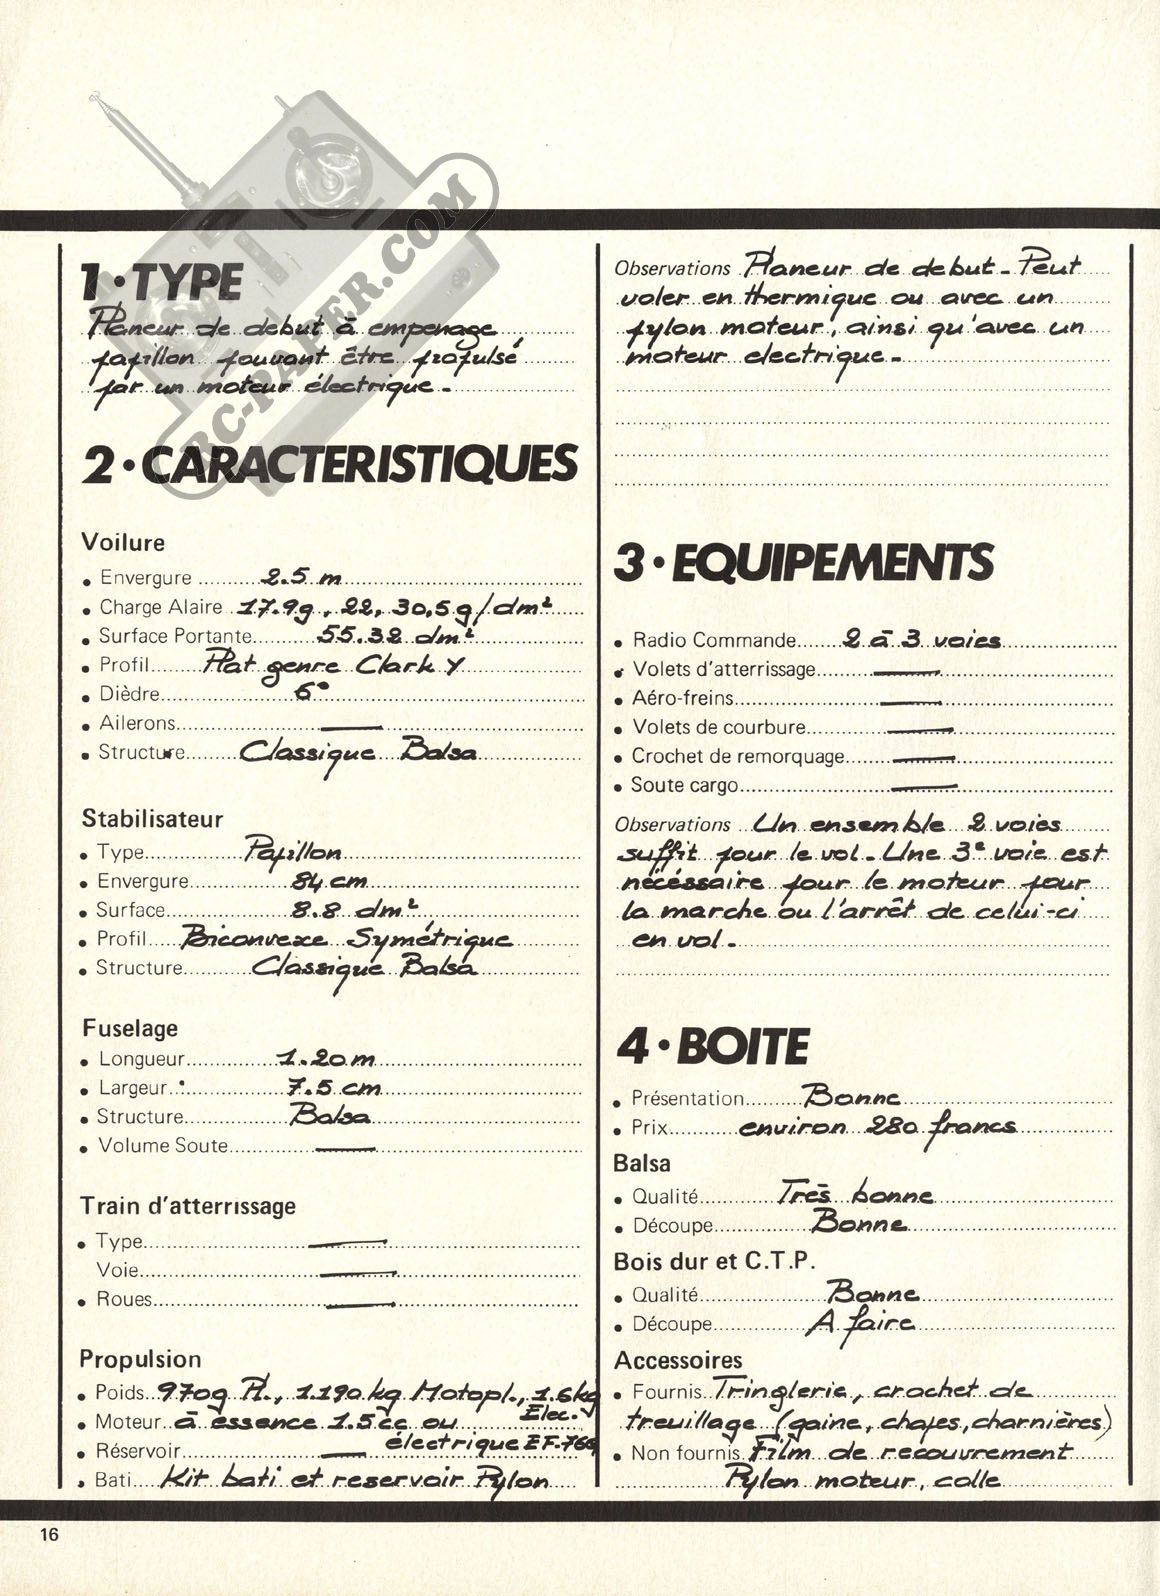 RC-PAPER.COM
1•TYPE
Planeur de debut à empenage
papillon pouvant être propulsé
par un moteur électrique -
2•CARACTERISTIQUES
Voilure
• Envergure 2.5 m
• Charge Alaire 17.9g, 22, 30,5 g/dm²
• Surface Portante 55.32 dm²
• Profil Plat genre Clark Y
• Dièdre 6°
• Ailerons —
• Structure Classique Balsa
Stabilisateur
• Type Papillon
• Envergure 84 cm
• Surface 8.8 dm²
• Profil Biconvexe Symétrique
• Structure Classique Balsa
Fuselage
• Longueur 1.20 m
• Largeur 7.5 cm
• Structure Balsa
• Volume Soute —
Train d'atterrissage
• Type —
Voie —
• Roues —
Propulsion
• Poids 970g Pl., 1.190 kg Motopl., 1.6kg Elec.
• Moteur à essence 1.5cc ou électrique EF-76
• Réservoir —
• Bati Kit bati et reservoir Pylon
Observations Planeur de debut - Peut
voler en thermique ou avec un
pylon moteur, ainsi qu'avec un
moteur electrique -
3•EQUIPEMENTS
• Radio Commande 2 à 3 voies
• Volets d'atterrissage —
• Aéro-freins —
• Volets de courbure —
• Crochet de remorquage —
• Soute cargo —
Observations Un ensemble 2 voies
suffit pour le vol - Une 3e voie est
nécéssaire pour le moteur pour
la marche ou l'arrêt de celui-ci
en vol -
4•BOITE
• Présentation Bonne
• Prix environ 280 francs
Balsa
• Qualité Très bonne
• Découpe Bonne
Bois dur et C.T.P.
• Qualité Bonne
• Découpe A faire
Accessoires
• Fournis Tringlerie, crochet de
treuillage (gaine, chapes, charnières)
• Non fournis Film de recouvrement
Pylon moteur, colle
16